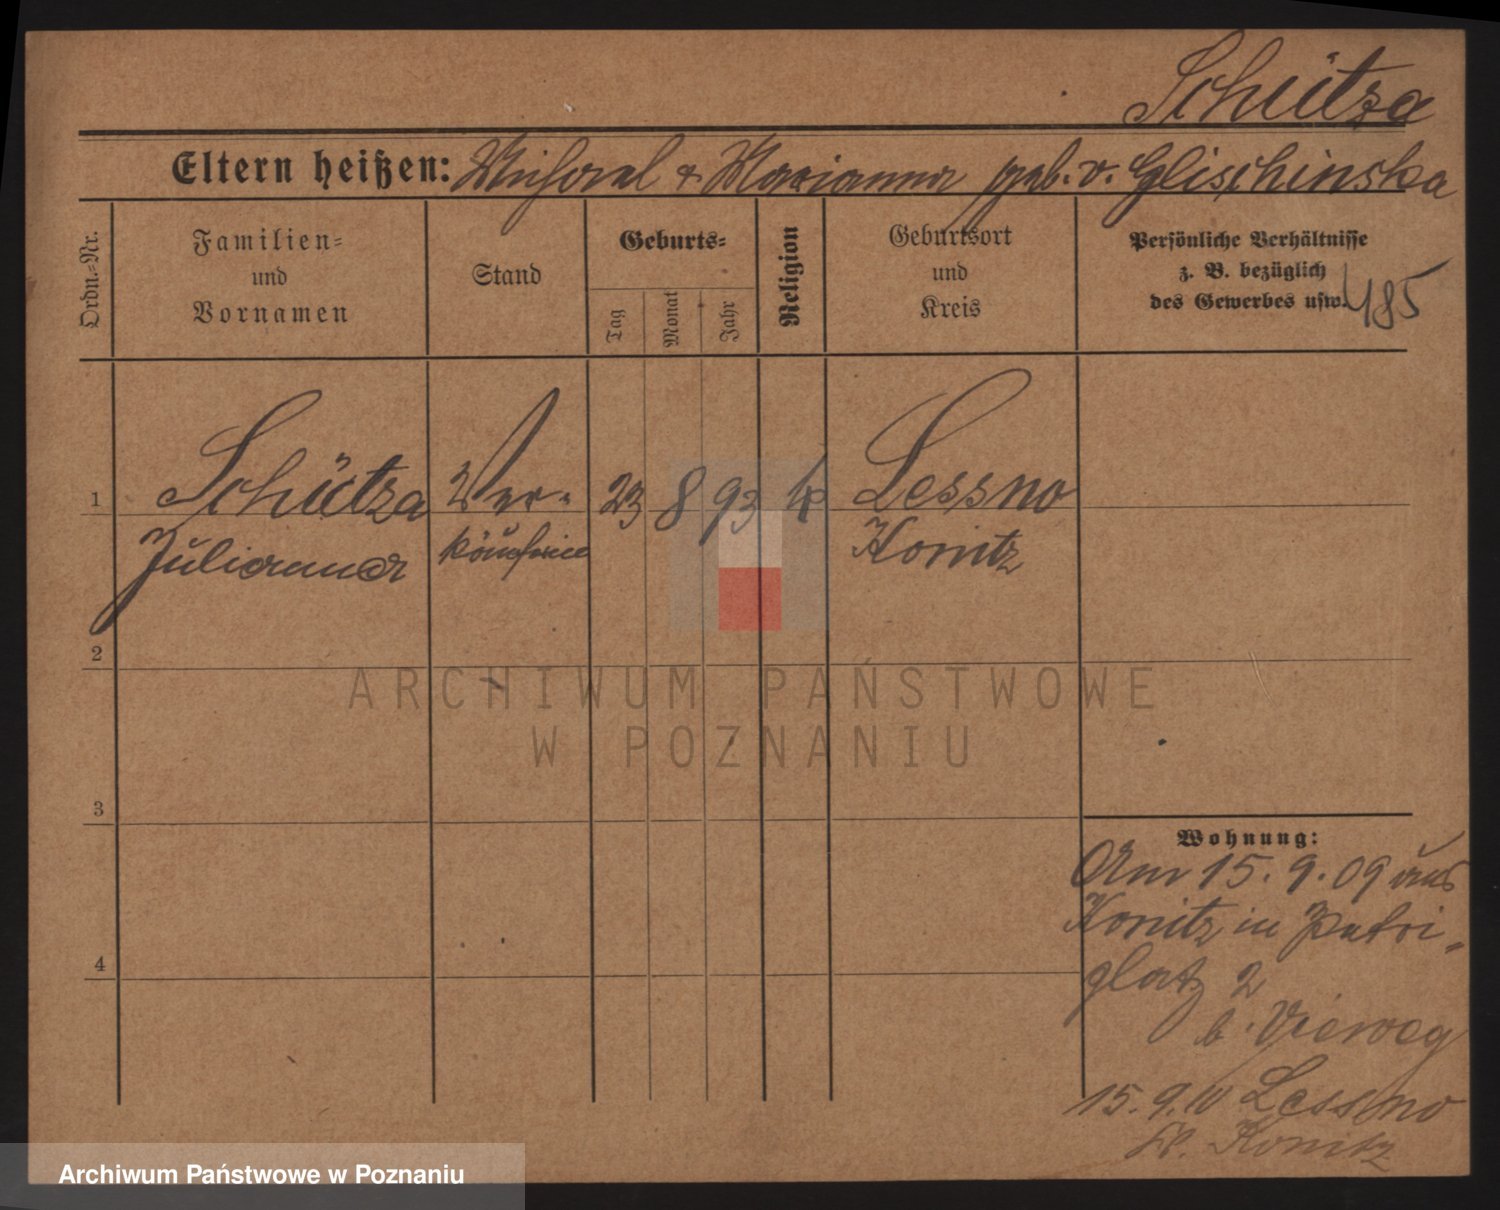 Schütza
Eltern heißen: Michael & Marianna geb. v. Glischinska
Ordn.-Nr.
Familien-
und
Vornamen
Stand
Geburts-
Tag
Monat
Jahr
Religion
Geburtsort
und
Kreis
Persönliche Verhältnisse
z. B. bezüglich
des Gewerbes usw.
485
1
Schütza
Julianna
Ver-
käuferin
23
8
93
k
Lessno
Konitz
2
3
4
Wohnung:
Am 15.9.09 aus
Konitz in Petri-
platz 2
b. Vieweg
15.9.10 Lessno
Kr. Konitz
ARCHIWUM PAŃSTWOWE
W POZNANIU
Archiwum Państwowe w Poznaniu